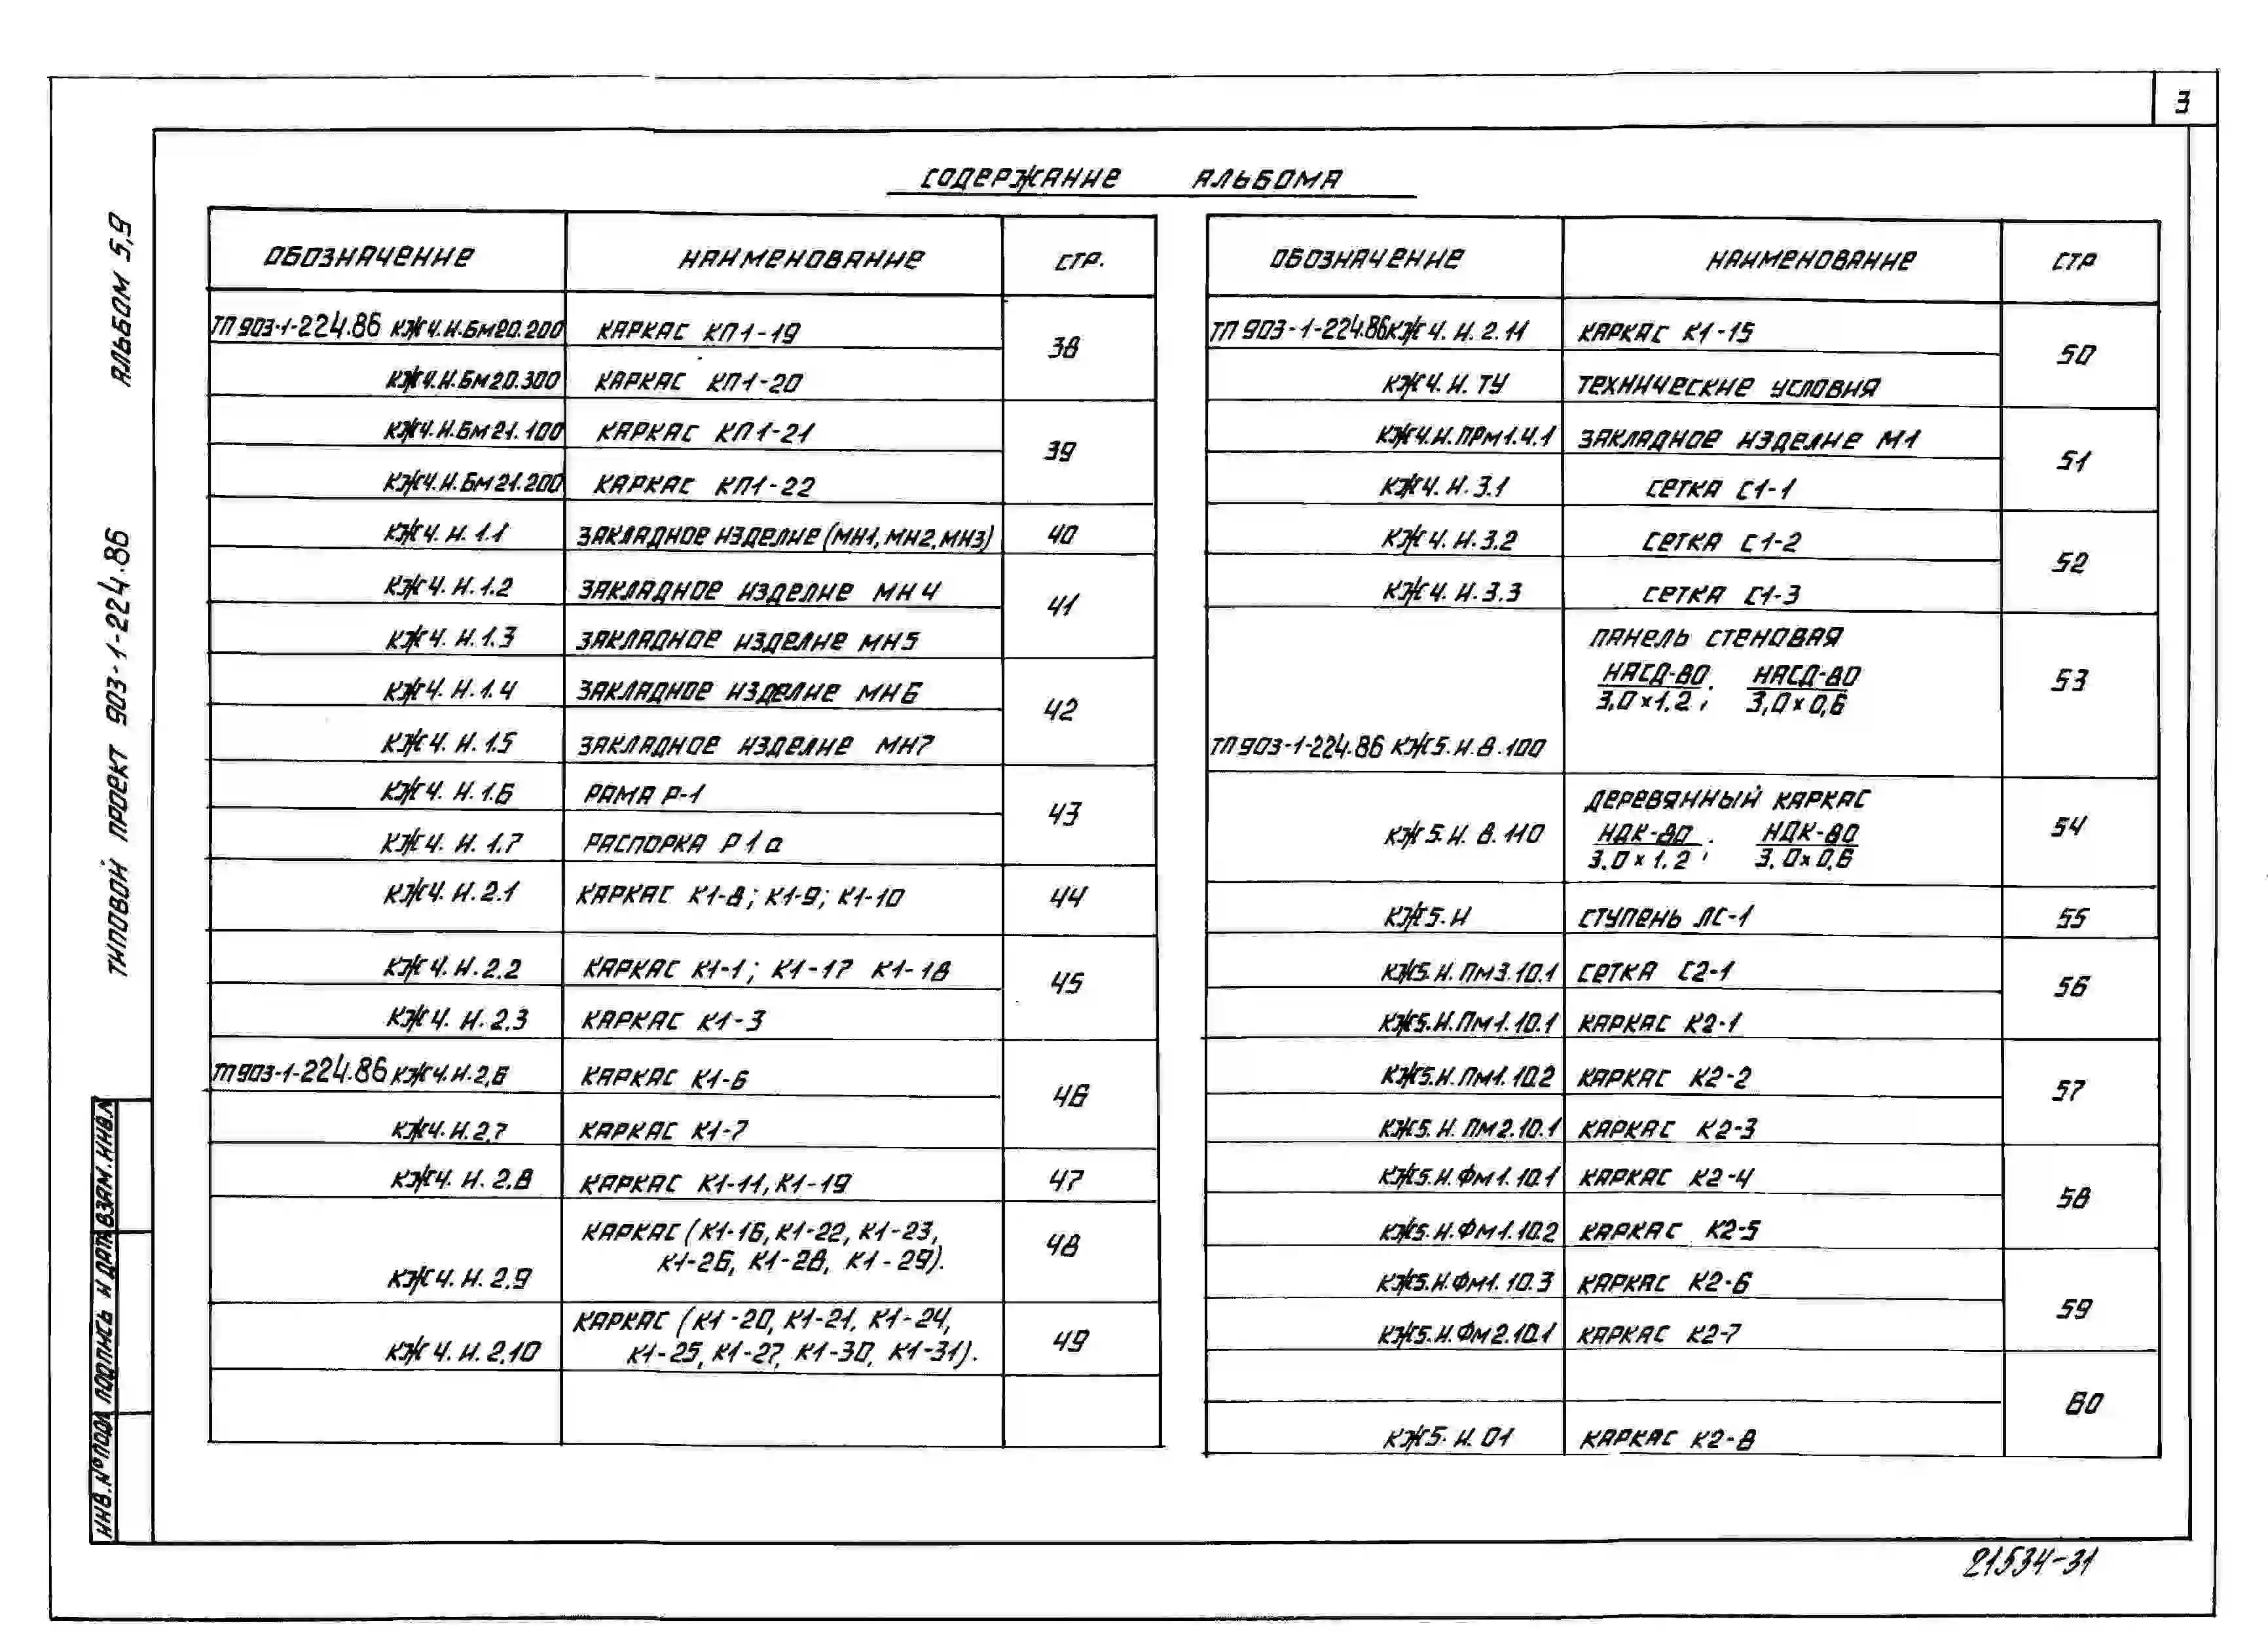 3
СОДЕРЖАНИЕ АЛЬБОМА
АЛЬБОМ 5,9
ТИПОВОЙ ПРОЕКТ 903-1-224.86
ОБОЗНАЧЕНИЕ НАИМЕНОВАНИЕ СТР.
ТП 903-1-224.86 КЖ4.И.БМ20.200 КАРКАС КП1-19 38
КЖ4.И.БМ20.300 КАРКАС КП1-20
КЖ4.И.БМ21.100 КАРКАС КП1-21 39
КЖ4.И.БМ21.200 КАРКАС КП1-22
КЖ4.И.1.1 ЗАКЛАДНОЕ ИЗДЕЛИЕ (МН1, МН2, МН3) 40
КЖ4.И.1.2 ЗАКЛАДНОЕ ИЗДЕЛИЕ МН4 41
КЖ4.И.1.3 ЗАКЛАДНОЕ ИЗДЕЛИЕ МН5
КЖ4.И.1.4 ЗАКЛАДНОЕ ИЗДЕЛИЕ МН6 42
КЖ4.И.1.5 ЗАКЛАДНОЕ ИЗДЕЛИЕ МН7
КЖ4.И.1.6 РАМА Р-1 43
КЖ4.И.1.7 РАСПОРКА Р1а
КЖ4.И.2.1 КАРКАС К1-8; К1-9; К1-10 44
КЖ4.И.2.2 КАРКАС К1-1; К1-17 К1-18 45
КЖ4.И.2.3 КАРКАС К1-3
ТП 903-1-224.86 КЖ4.И.2.6 КАРКАС К1-6 46
КЖ4.И.2.7 КАРКАС К1-7
КЖ4.И.2.8 КАРКАС К1-11, К1-19 47
КАРКАС (К1-16, К1-22, К1-23,
КЖ4.И.2.9 К1-26, К1-28, К1-29). 48
КАРКАС (К1-20, К1-21, К1-24,
КЖ4.И.2.10 К1-25, К1-27, К1-30, К1-31). 49
ОБОЗНАЧЕНИЕ НАИМЕНОВАНИЕ СТР
ТП 903-1-224.86 КЖ4.И.2.11 КАРКАС К1-15 50
КЖ4.И.ТУ ТЕХНИЧЕСКИЕ УСЛОВИЯ
КЖ4.И.ПРМ1.4.1 ЗАКЛАДНОЕ ИЗДЕЛИЕ М1 51
КЖ4.И.3.1 СЕТКА С1-1
КЖ4.И.3.2 СЕТКА С1-2 52
КЖ4.И.3.3 СЕТКА С1-3
ПАНЕЛЬ СТЕНОВАЯ
НАСД-80 НАСД-80 53
3,0×1.2; 3,0×0,6
ТП 903-1-224.86 КЖ5.И.В.100
ДЕРЕВЯННЫЙ КАРКАС
КЖ5.И.В.110 НДК-80 НДК-80 54
3.0×1.2; 3.0×0.6
КЖ5.И СТУПЕНЬ ЛС-1 55
КЖ5.И.ПМ3.10.1 СЕТКА С2-1 56
КЖ5.И.ПМ1.10.1 КАРКАС К2-1
КЖ5.И.ПМ1.10.2 КАРКАС К2-2 57
КЖ5.И.ПМ2.10.1 КАРКАС К2-3
КЖ5.И.ФМ1.10.1 КАРКАС К2-4 58
КЖ5.И.ФМ1.10.2 КАРКАС К2-5
КЖ5.И.ФМ1.10.3 КАРКАС К2-6 59
КЖ5.И.ФМ2.10.1 КАРКАС К2-7
60
КЖ5.И.01 КАРКАС К2-8
ИНВ.№ПОДЛ ПОДПИСЬ И ДАТ ВЗАМ.ИНВ.
21534-31